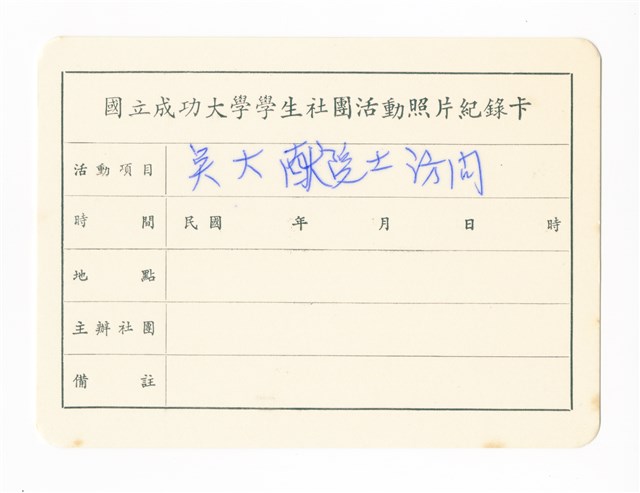 國立成功大學學生社團活動照片紀錄卡
活動項目 吳大猷院士訪問
時間 民國 年 月 日 時
地點
主辦社團
備註